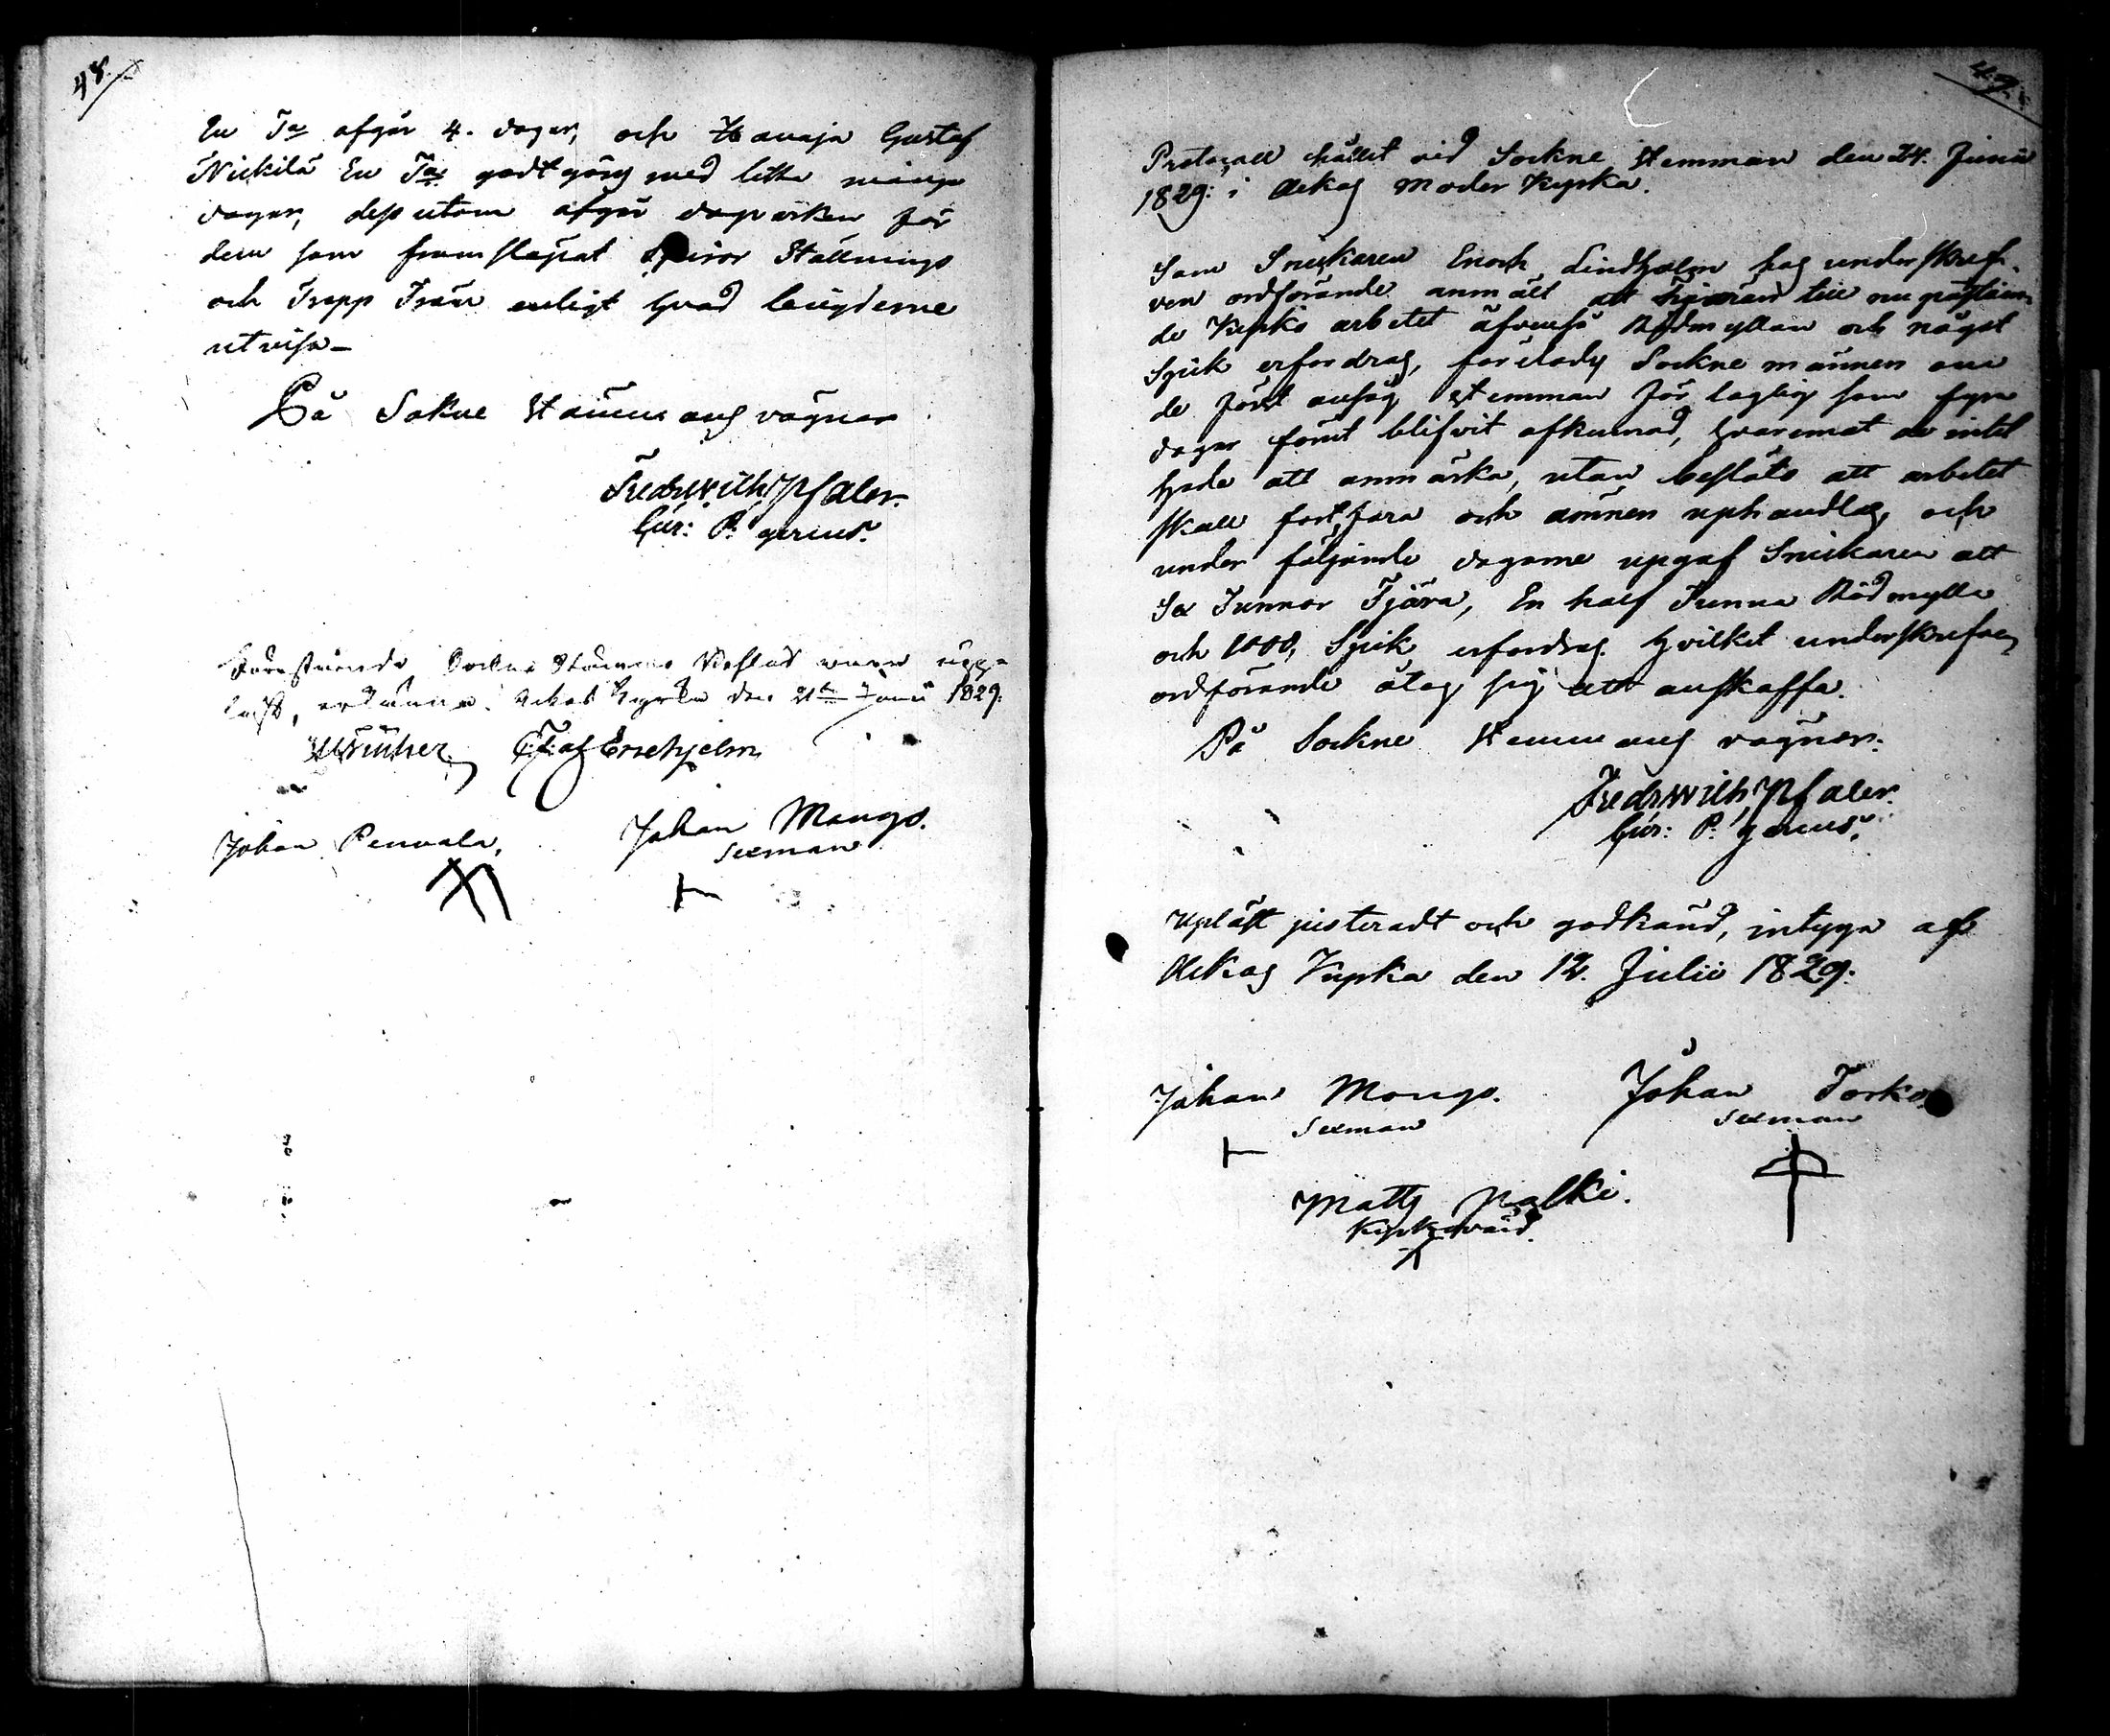 48.
En T:a afgår 4. dagar, och Hanaja Gustaf
Nickilä En T:a godtgörs med lika många
dagar, dessutom afgår dagsvärken för
dem som framsläpat Spiror Ställnings
och Trapp Trän enligt hvad längderne
utvisa_
På Sokne Stämmans vägnar
Fredr. Wilh. Pfaler.
Cur: P. gerens.
Förestående Sockne Stämmo Beslut vara upp-
läst, erkänna. Ackas Kyrka den 21sta Junii 1829.
C: F: af Enehjelm
Johan Penvala,
Johan Mango.
Sexman
49.
Protocoll hållet vid Sockne Stemman den 24. Junii
1829: i Ackas Moder Kyrka.
Som Snickaren Enoch Lindholm hos underskref-
ven ordförande anmält att Tjäran till nu påståen-
de Kyrko arbetet äfvenså Rödmyllan och något
Spik erfordras, förelades Sockne männen om
de först ansåg Stemman för laglig som fyra
dagar förut blifvit afkunnad, hvaremot de intet
hade att anmärka, utan beslöts att arbetet
skall fortfara och ämnen uphandlas, och
under följande dagarne upgaf Snickaren att
Sex Tunnor Tjära, En half Tunna Rödmylla
och 1000, Spik erfordras hvilket underskrefven
ordförande åtog sig att anskaffa.
På Sockne Stemmans vägnar.
Fredr. Wilh. Pfaler.
Cur: P. gerens.
Upläst justeradt och godkänd, intygar af
Ackas Kyrka den 12. Julii 1829.
Johan Mango.
Sexman
Johan Torko
Sexman
Matts Nalki.
Kyrkovärd.